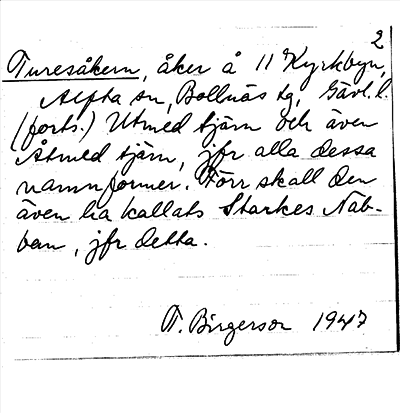 2
Turesåkern, åker å 11 Kyrkbyn,
Alfta sn, Bollnäs tg, Gävl. l.
(forts.) Utmed tjärn och även
Åtmed tjärn, jfr alla dessa
namnformer. Förr skall den
även ha kallats Starkes Nab-
ben, jfr detta.
T. Birgerson 1947